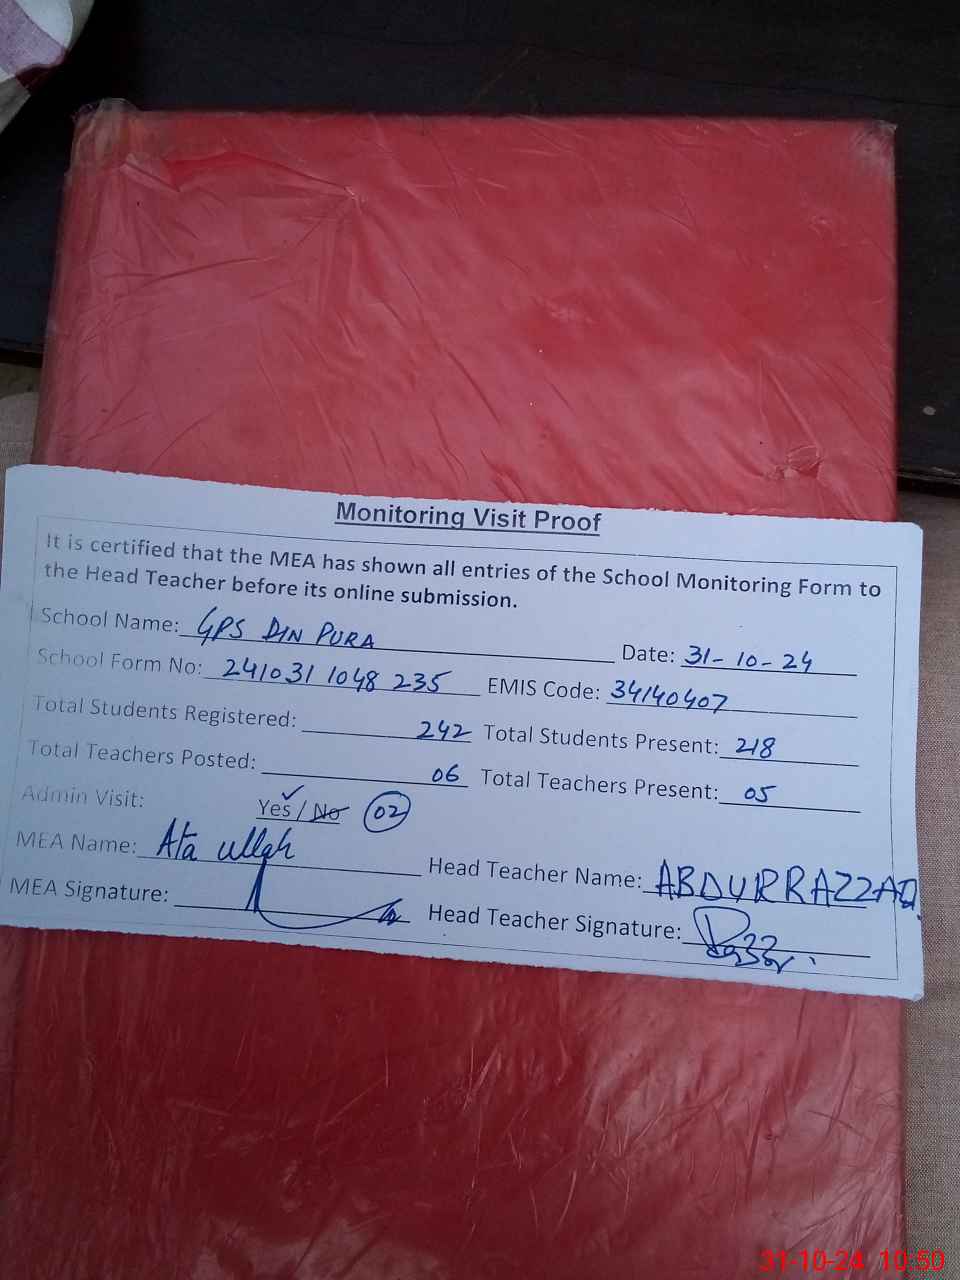 Monitoring Visit Proof
It is certified that the MEA has shown all entries of the School Monitoring Form to
the Head Teacher before its online submission.
School Name: GPS DIN PURA Date: 31-10-24
School Form No: 241031 1048 235 EMIS Code: 34140407
Total Students Registered: 242 Total Students Present: 218
Total Teachers Posted: 06 Total Teachers Present: 05
Admin Visit: Yes / No 02
MEA Name: Ata ullah Head Teacher Name: ABDURRAZZAQ
MEA Signature: Head Teacher Signature:
31-10-24 10:50